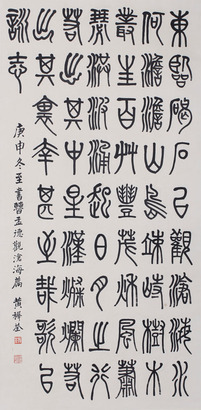 東臨碣石㠯觀滄海水
何澹澹山島竦峙樹木
叢生百艸豐茂秋風蕭
瑟洪波涌起日月之行
若出其中星漢燦爛若
出其裏幸甚至哉歌㠯
詠志
庚申冬至書曹孟德觀滄海篇 黃稚荃